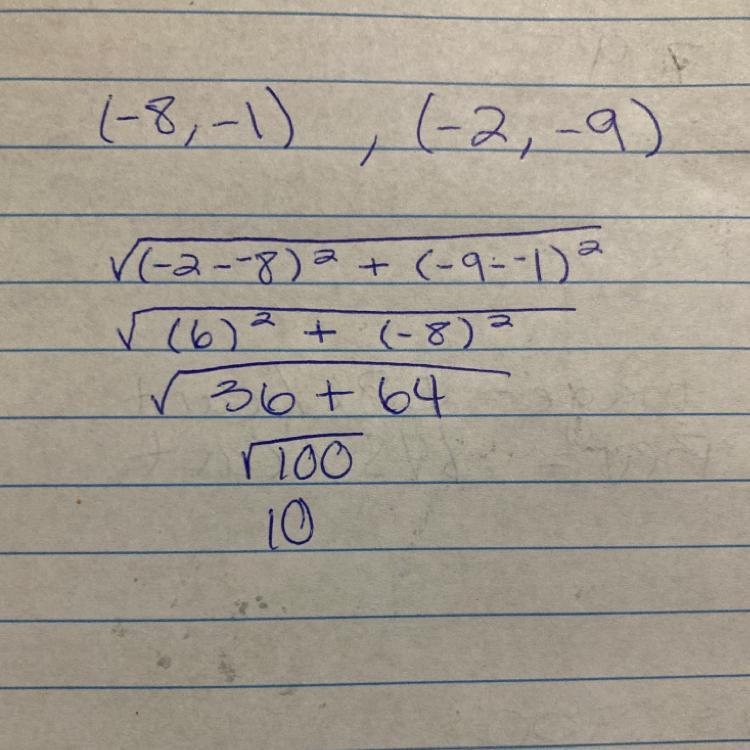 (-8, -1) , (-2, -9)
√(-2 - -8)² + (-9 - -1)²
√(6)² + (-8)²
√36 + 64
√100
10